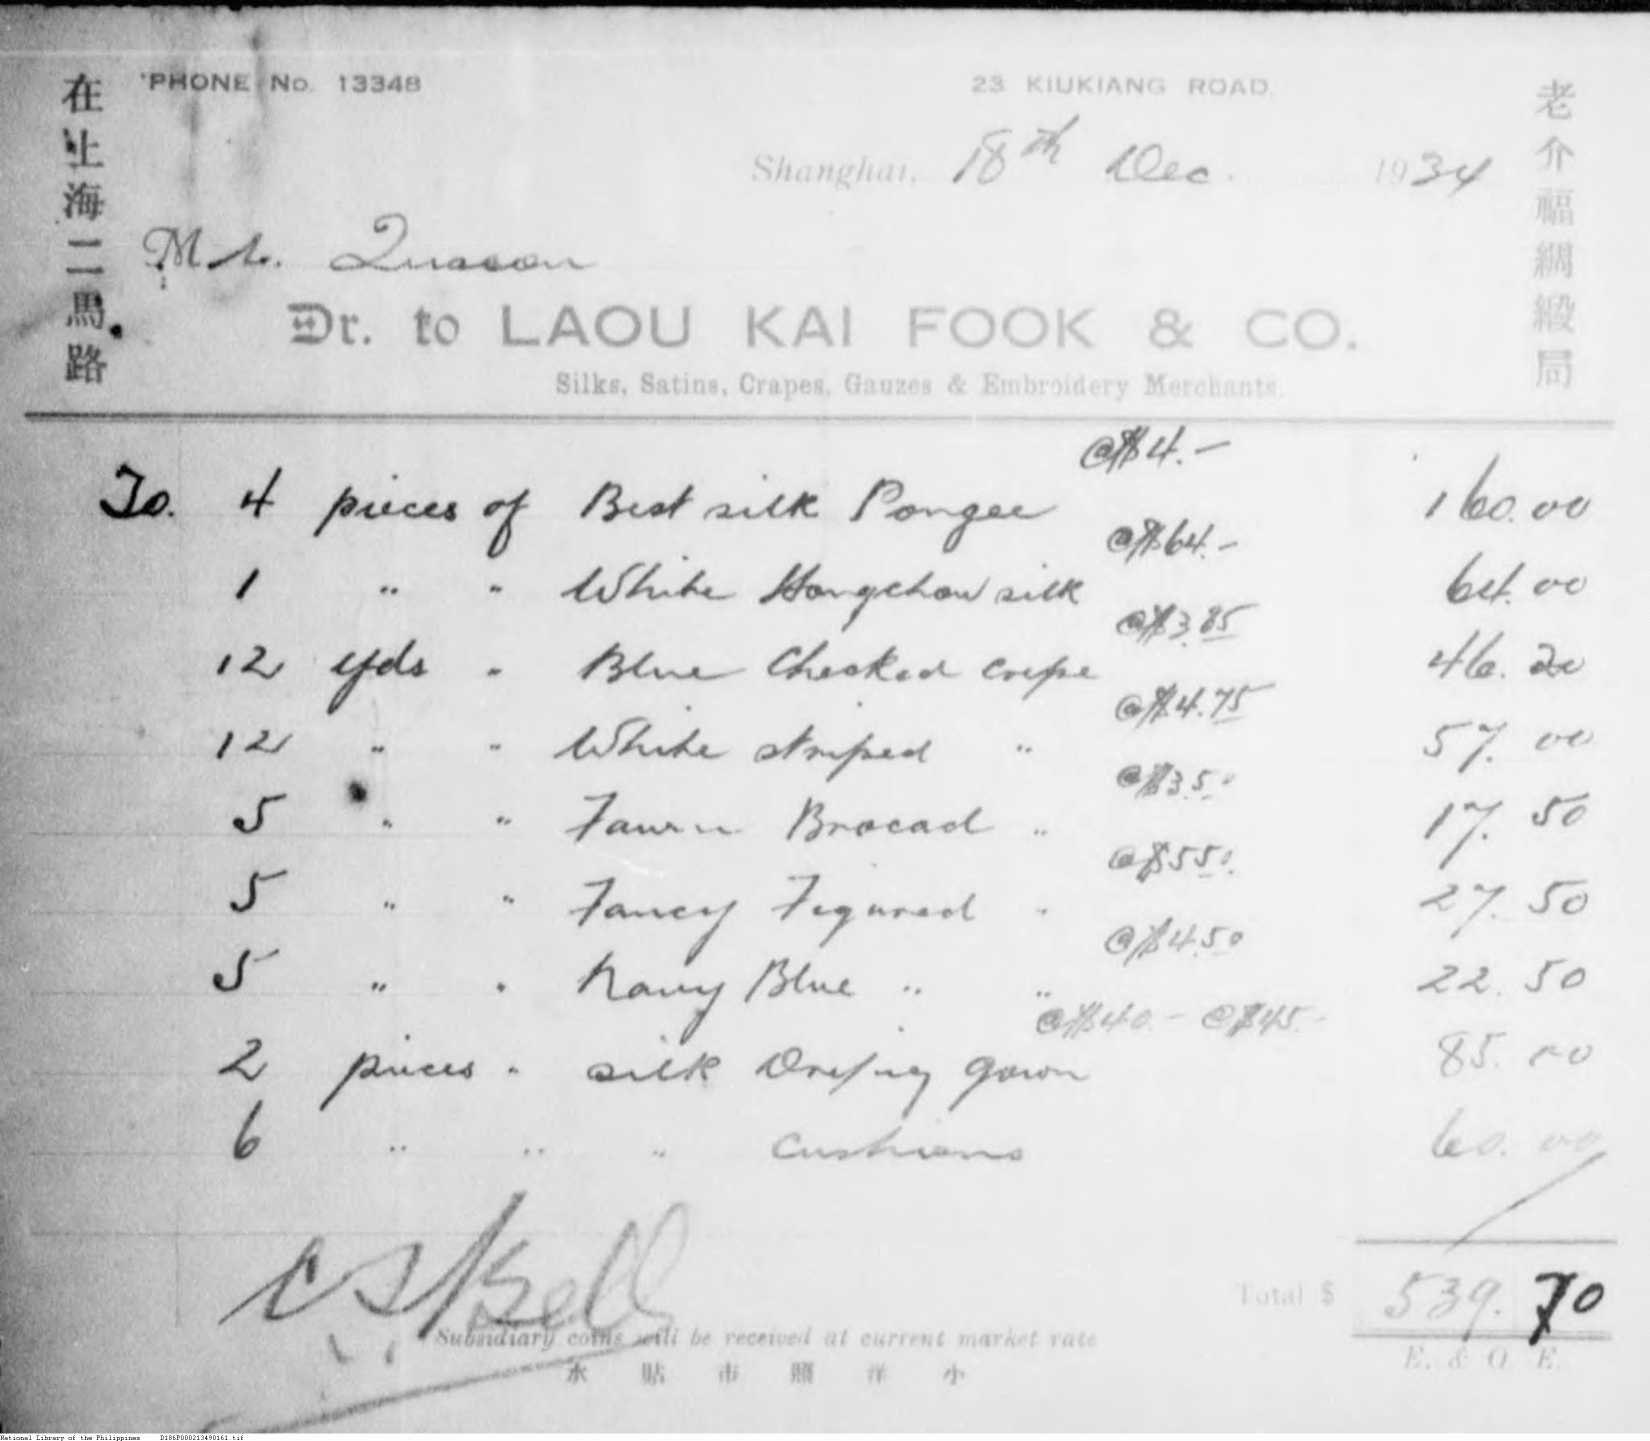 'PHONE No. 13348
23 KIUKIANG ROAD.
在上海二馬路
老介福綢緞局
Shanghai, 18th Dec. 1934
Mr. Quezon
Dr. to LAOU KAI FOOK & CO.
Silks, Satins, Crapes, Gauzes & Embroidery Merchants.
@$4.-
To. 4 pieces of Best silk Pongee 160.00
@$64.-
1 " " White Hangchow silk 64.00
@$3.85
12 yds " Blue Checked crepe 46.20
@$4.75
12 " " White striped " 57.00
@$3.50
5 " " Fawn Brocad " 17.50
@$5.50
5 " " Fancy Figured " 27.50
@$4.50
5 " " Navy Blue " " 22.50
@$40.- @$45.-
2 pieces " silk Dressing gown 85.00
6 " " " cushions 60.00
Total $ 539.70
Subsidiary coins will be received at current market rate
E. & O. E.
水貼市照洋小
National Library of the Philippines D186P000213490161.tif